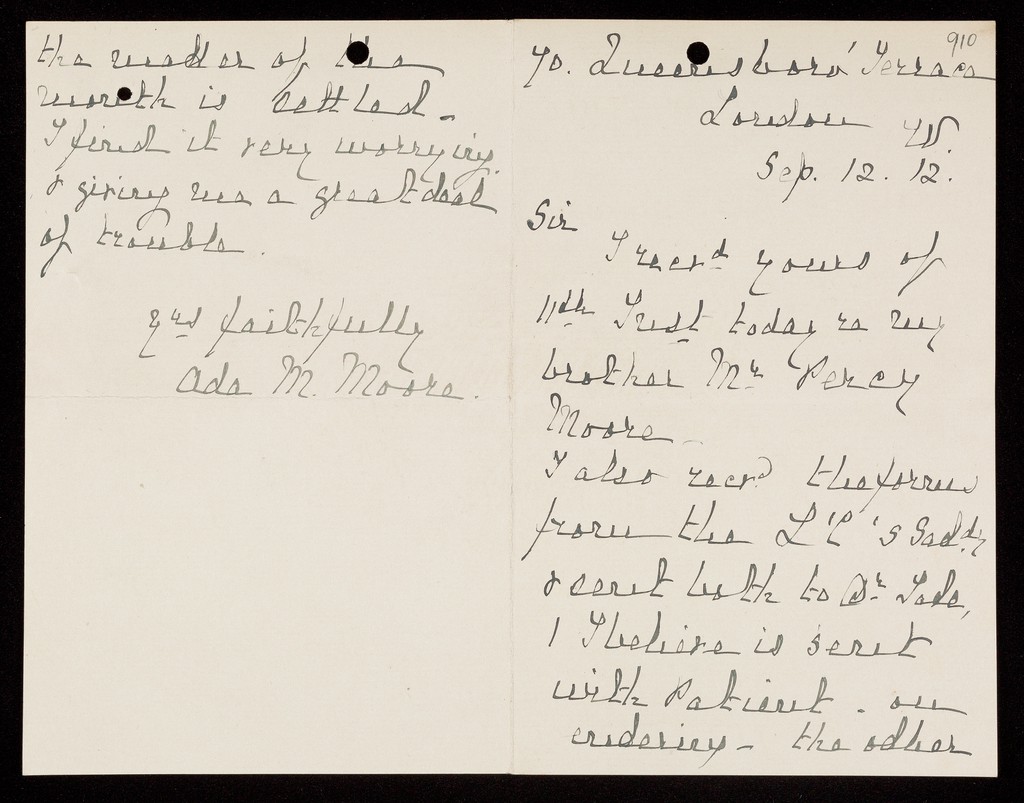 910
70. Queensboro' Terrace
London W.
Sep. 12. 12.
Sir
I recvd yours of
11th Inst today re my
brother Mr Percy
Moore
I also recd the forms
from the
& sent both to Dr
1 I believe is sent
with Patient . on
the other
the matter of the
month is settled.
I find it very worrying.
& giving me a great deal
of trouble.
yrs faithfully
Ada M. Moore.